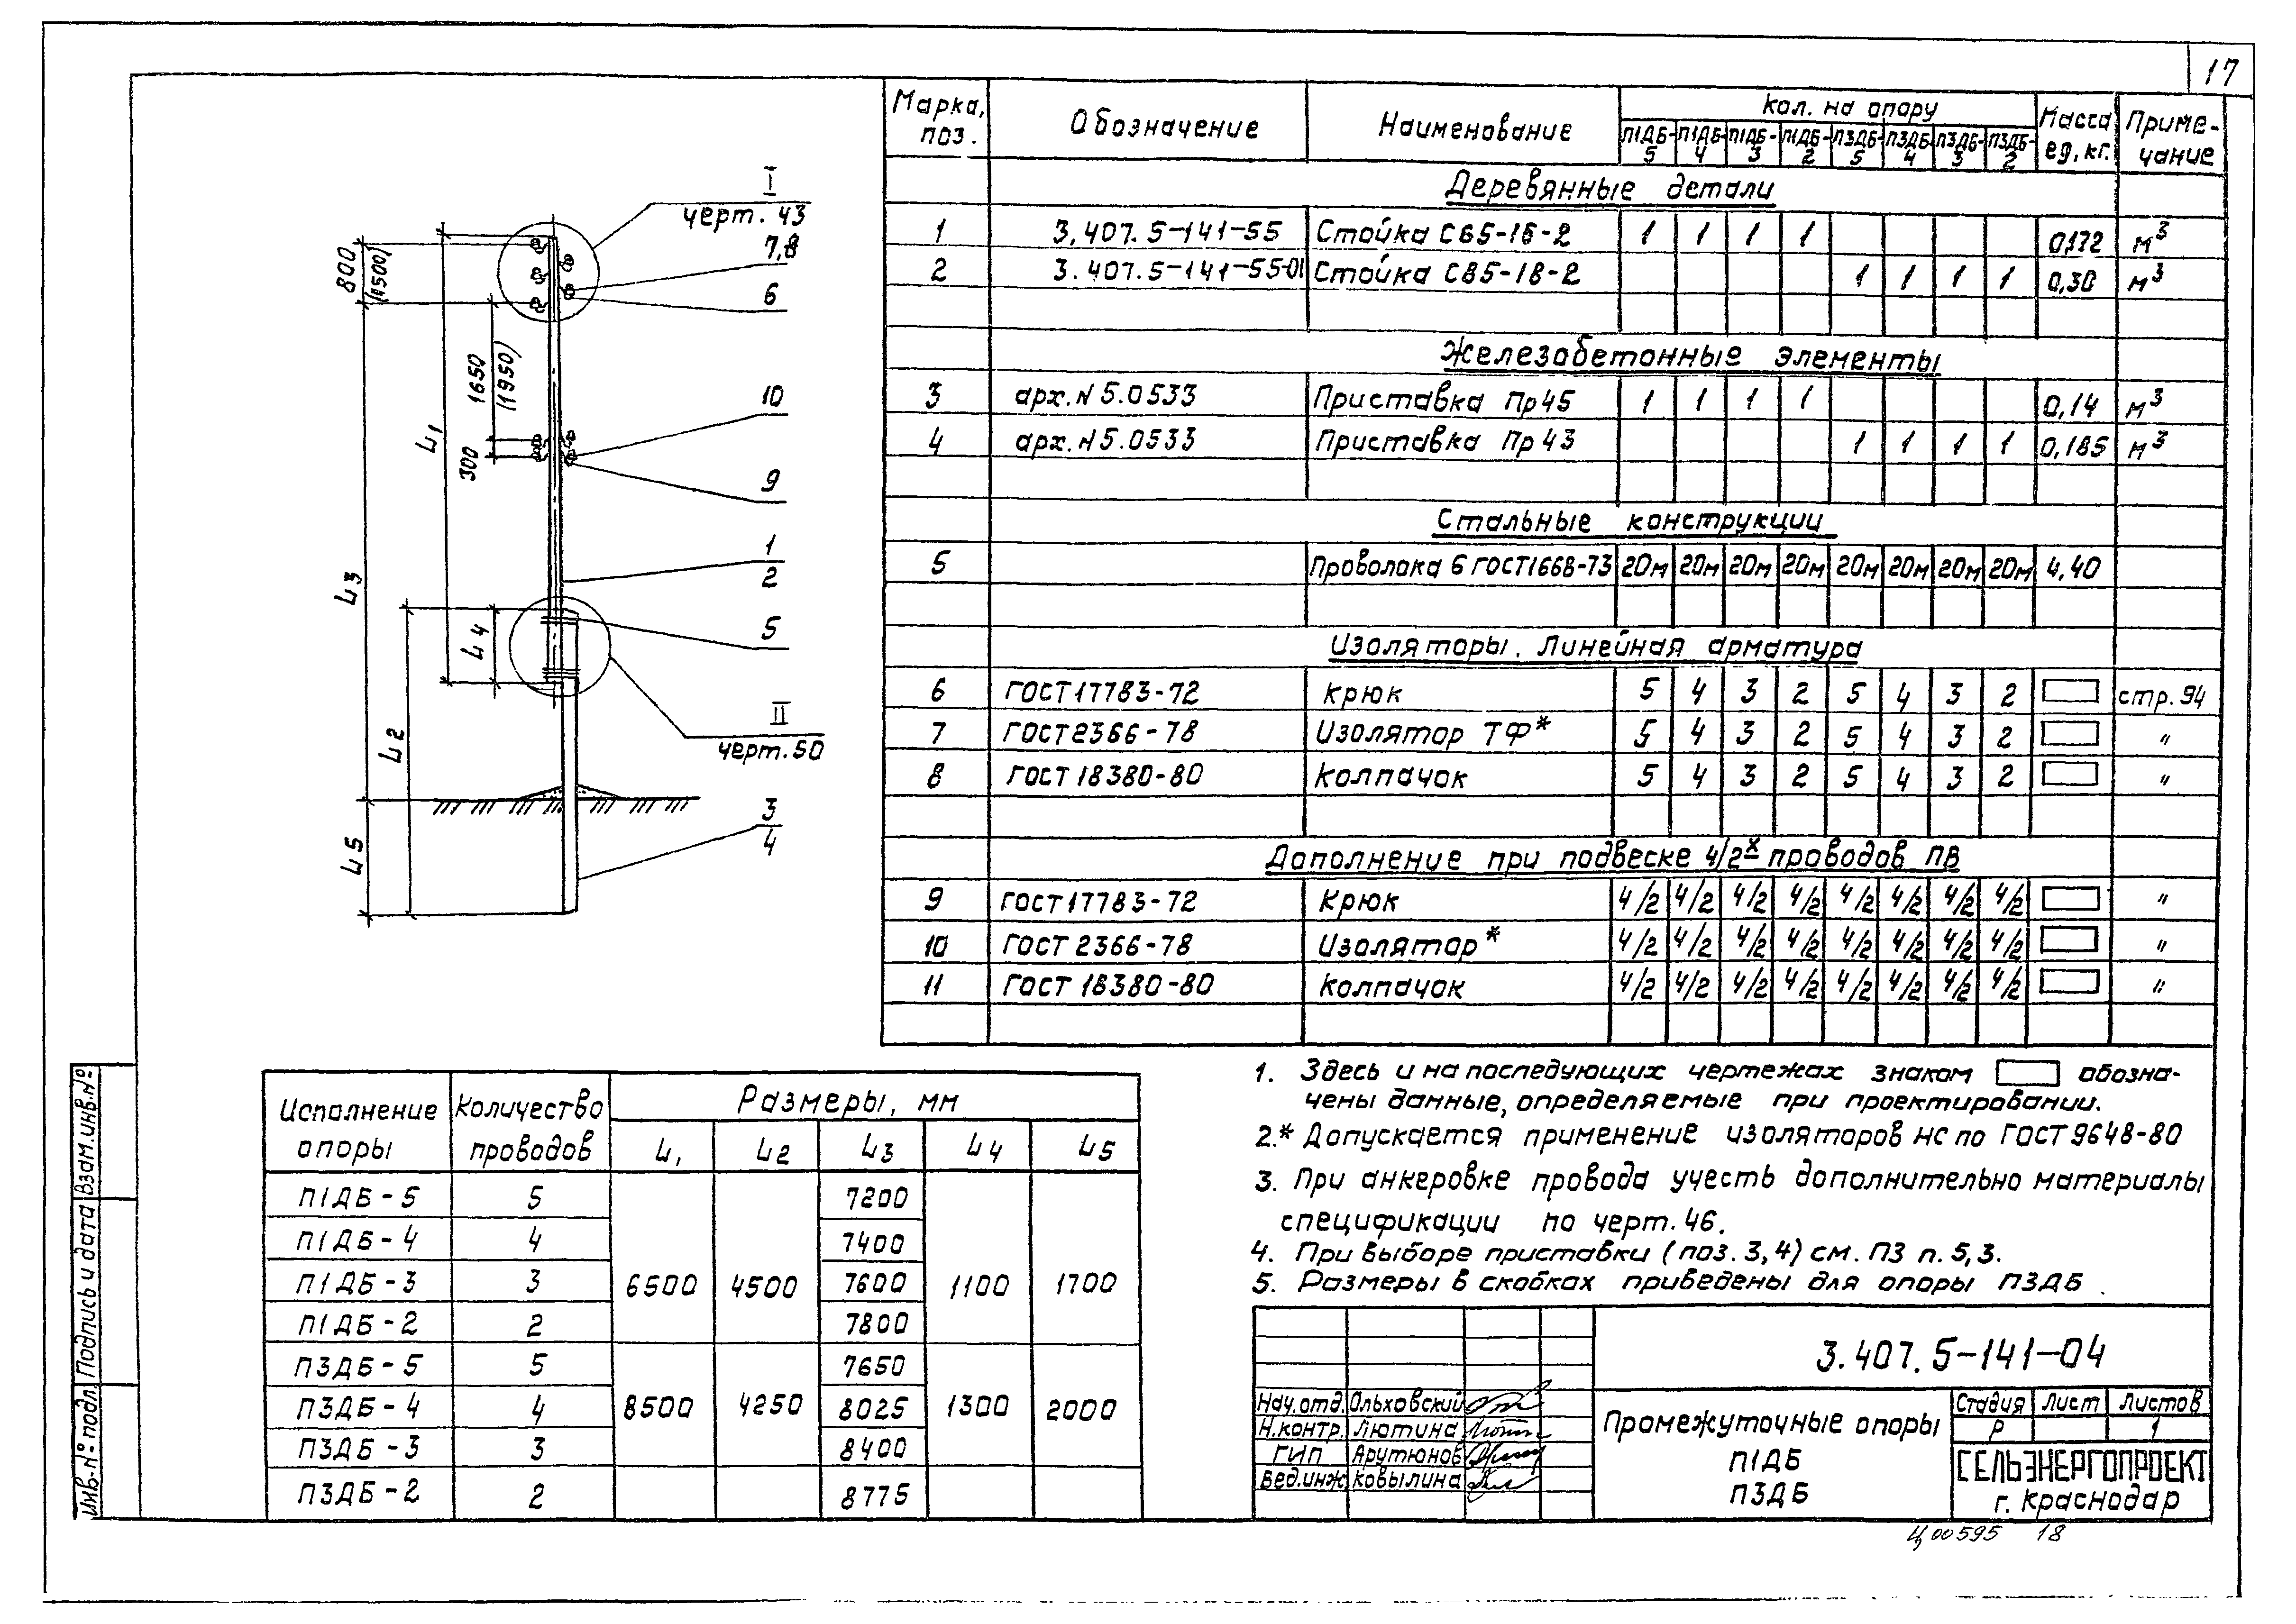 17
I
черт. 43
7,8
6
800
(1500)
1650
(1950)
300
10
9
1
2
5
II
черт. 50
3
4
L1
L2
L3
L4
L5
Марка, поз. | Обозначение | Наименование | Кол. на опору | Масса ед, кг. | Приме-чание
П1ДБ-5 | П1ДБ-4 | П1ДБ-3 | П1ДБ-2 | П3ДБ-5 | П3ДБ-4 | П3ДБ-3 | П3ДБ-2
Деревянные детали
1 3.407.5-141-55 Стойка С65-16-2 1 1 1 1 0,172 м3
2 3.407.5-141-55-01 Стойка С85-18-2 1 1 1 1 0,30 м3
Железобетонные элементы
3 арх.N 5.0533 Приставка Пр45 1 1 1 1 0,14 м3
4 арх.N 5.0533 Приставка Пр43 1 1 1 1 0,185 м3
Стальные конструкции
5 Проволока 6 ГОСТ1668-73 20м 20м 20м 20м 20м 20м 20м 20м 4,40
Изоляторы. Линейная арматура
6 ГОСТ17783-72 Крюк 5 4 3 2 5 4 3 2 стр. 94
7 ГОСТ2366-78 Изолятор ТФ* 5 4 3 2 5 4 3 2 "
8 ГОСТ 18380-80 Колпачок 5 4 3 2 5 4 3 2 "
Дополнение при подвеске 4/2х проводов ПВ
9 ГОСТ17783-72 Крюк 4/2 4/2 4/2 4/2 4/2 4/2 4/2 4/2 "
10 ГОСТ 2366-78 Изолятор* 4/2 4/2 4/2 4/2 4/2 4/2 4/2 4/2 "
11 ГОСТ 18380-80 Колпачок 4/2 4/2 4/2 4/2 4/2 4/2 4/2 4/2 "
Исполнение опоры | Количество проводов | Размеры, мм
L1 L2 L3 L4 L5
П1ДБ-5 5 7200
П1ДБ-4 4 7400
П1ДБ-3 3 6500 4500 7600 1100 1700
П1ДБ-2 2 7800
П3ДБ-5 5 7650
П3ДБ-4 4 8500 4250 8025 1300 2000
П3ДБ-3 3 8400
П3ДБ-2 2 8775
1. Здесь и на последующих чертежах знаком обозна-
чены данные, определяемые при проектировании.
2.* Допускается применение изоляторов НС по ГОСТ 9648-80
3. При анкеровке провода учесть дополнительно материалы
спецификации по черт. 46.
4. При выборе приставки (поз. 3,4) см. ПЗ п. 5,3.
5. Размеры в скобках приведены для опоры П3ДБ.
3.407.5-141-04
Нач.отд. Ольховский
Н.контр. Лютина
ГИП Арутюнов
Вед.инж Ковылина
Промежуточные опоры
П1ДБ
П3ДБ
Стадия Лист Листов
Р 1
СЕЛЬЭНЕРГОПРОЕКТ
г. Краснодар
Ц00595 18
Инв.№ подл. Подпись и дата Взам.инв.№